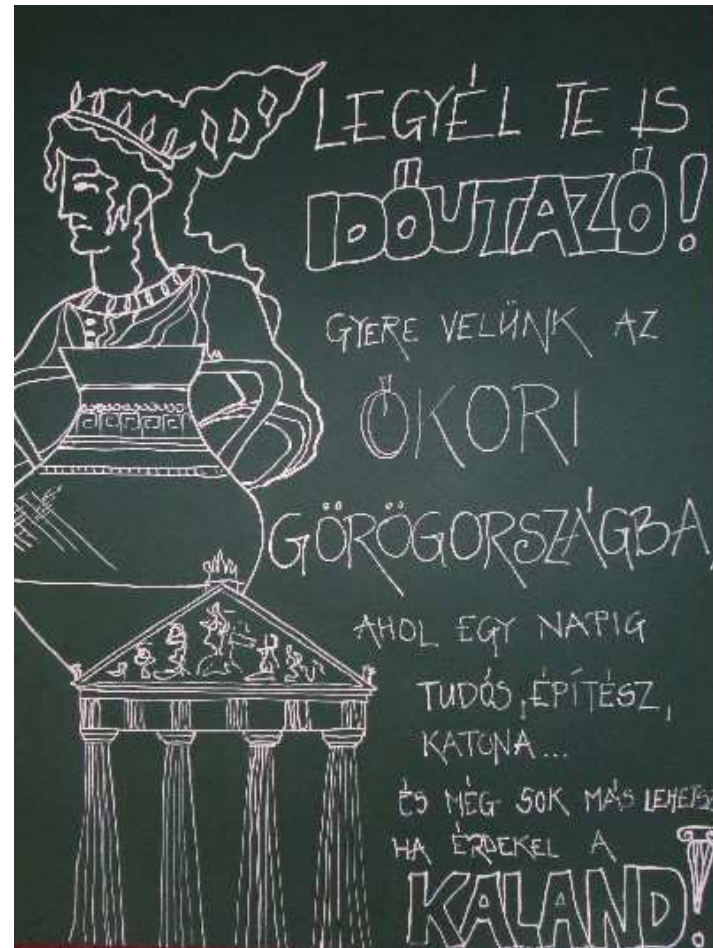 LEGYÉL TE IS
IDŐUTAZÓ!
GYERE VELÜNK AZ
ÓKORI
GÖRÖGORSZÁGBA,
AHOL EGY NAPIG
TUDÓS, ÉPÍTÉSZ,
KATONA...
ÉS MÉG SOK MÁS LEHETSZ
HA ÉRDEKEL A
KALAND!